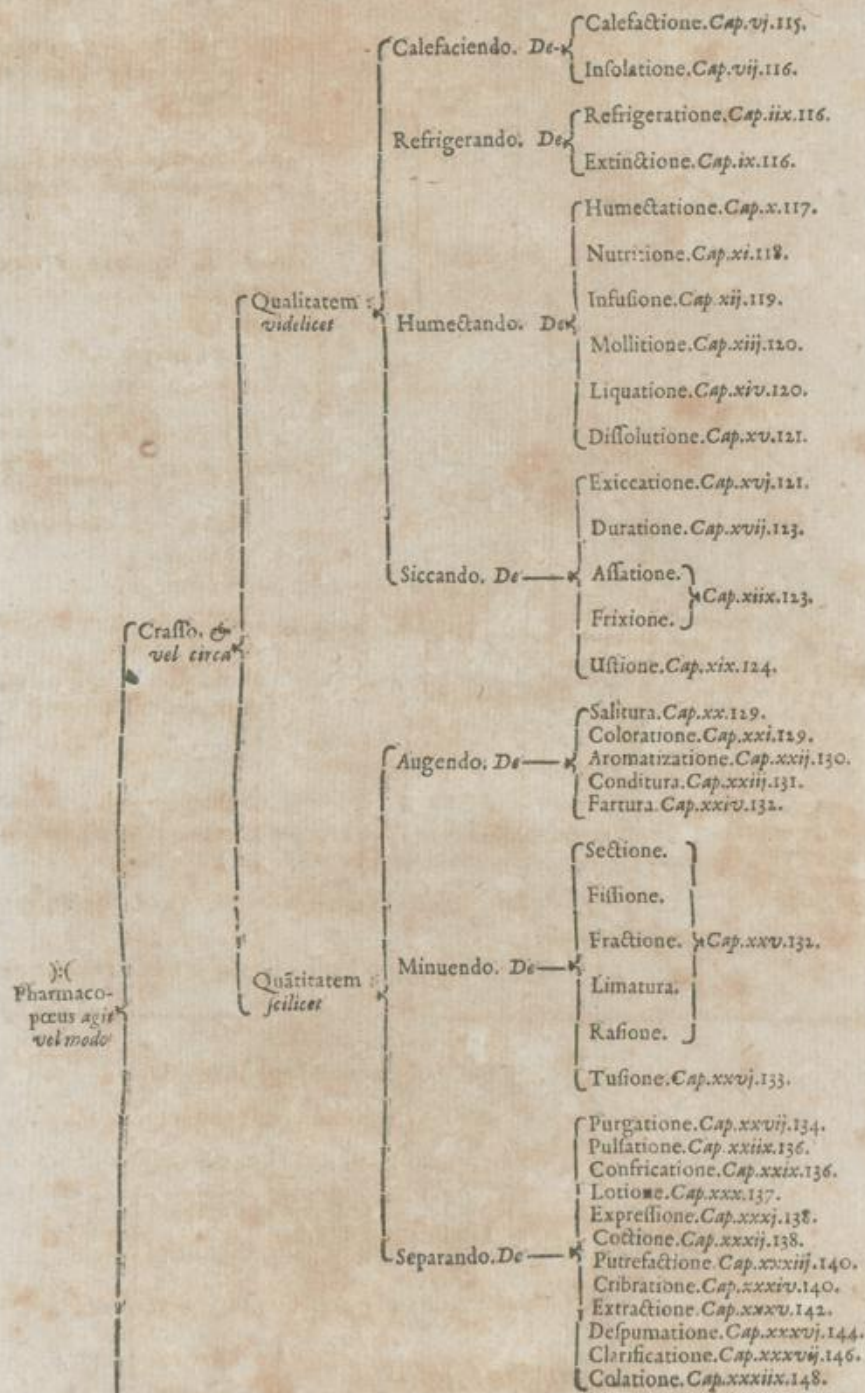 Calefaciendo. De
Calefactione. Cap. vj. 115.
Insolatione. Cap. vij. 116.
Refrigerando. De
Refrigeratione. Cap. iix. 116.
Extinctione. Cap. ix. 116.
Qualitatem :
videlicet
Humectando. De
Humectatione. Cap. x. 117.
Nutritione. Cap. xi. 118.
Infusione. Cap xij. 119.
Mollitione. Cap. xiij. 120.
Liquatione. Cap. xiv. 120.
Dissolutione. Cap. xv. 121.
Siccando. De
Exiccatione. Cap. xvj. 121.
Duratione. Cap. xvij. 123.
Assatione.
Frixione.
Cap. xiix. 123.
Ustione. Cap. xix. 124.
Crasso. &
vel circa
Augendo. De
Salitura. Cap. xx. 129.
Coloratione. Cap. xxi. 129.
Aromatizatione. Cap. xxij. 130.
Conditura. Cap. xxiij. 131.
Fartura. Cap. xxiv. 132.
):(
Pharmaco-
pœus agit
vel modo
Quãtitatem :
scilicet
Minuendo. De
Sectione.
Fissione.
Fractione.
Limatura.
Rasione.
Cap. xxv. 132.
Tusione. Cap. xxvj. 133.
Separando. De
Purgatione. Cap. xxvij. 134.
Pulsatione. Cap. xxiix. 136.
Confricatione. Cap. xxix. 136.
Lotione. Cap. xxx. 137.
Expressione. Cap. xxxj. 138.
Coctione. Cap. xxxij. 138.
Putrefactione. Cap. xxxiij. 140.
Cribratione. Cap. xxxiv. 140.
Extractione. Cap. xxxv. 142.
Despumatione. Cap. xxxvj. 144.
Clarificatione. Cap. xxxvij. 146.
Colatione. Cap. xxxiix. 148.